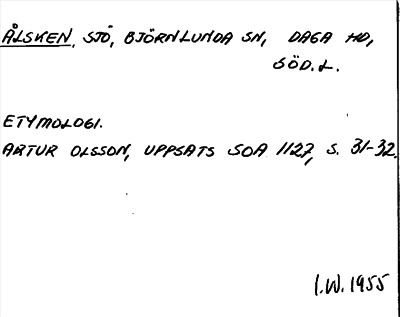 ÅLSKEN, SJÖ, BJÖRNLUNDA SN, DAGA HD,
SÖD.L.
ETYMOLOGI.
ARTUR OLSSON, UPPSATS SOA 1127, S. 31-32.
I.W. 1955